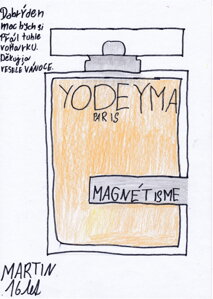 Dobrý den
moc bych si
Přál tuhle
voňavku.
Děkuji a
VESELÉ VÁNOCE.
YODEYMA
PARIS
MAGNÉTISME
MARTIN
16 let